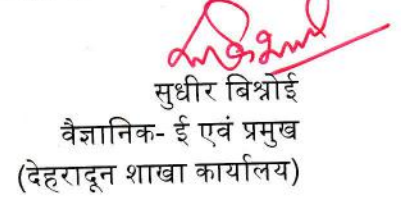 सुधीर बिश्नोई
वैज्ञानिक- ई एवं प्रमुख
(देहरादून शाखा कार्यालय)